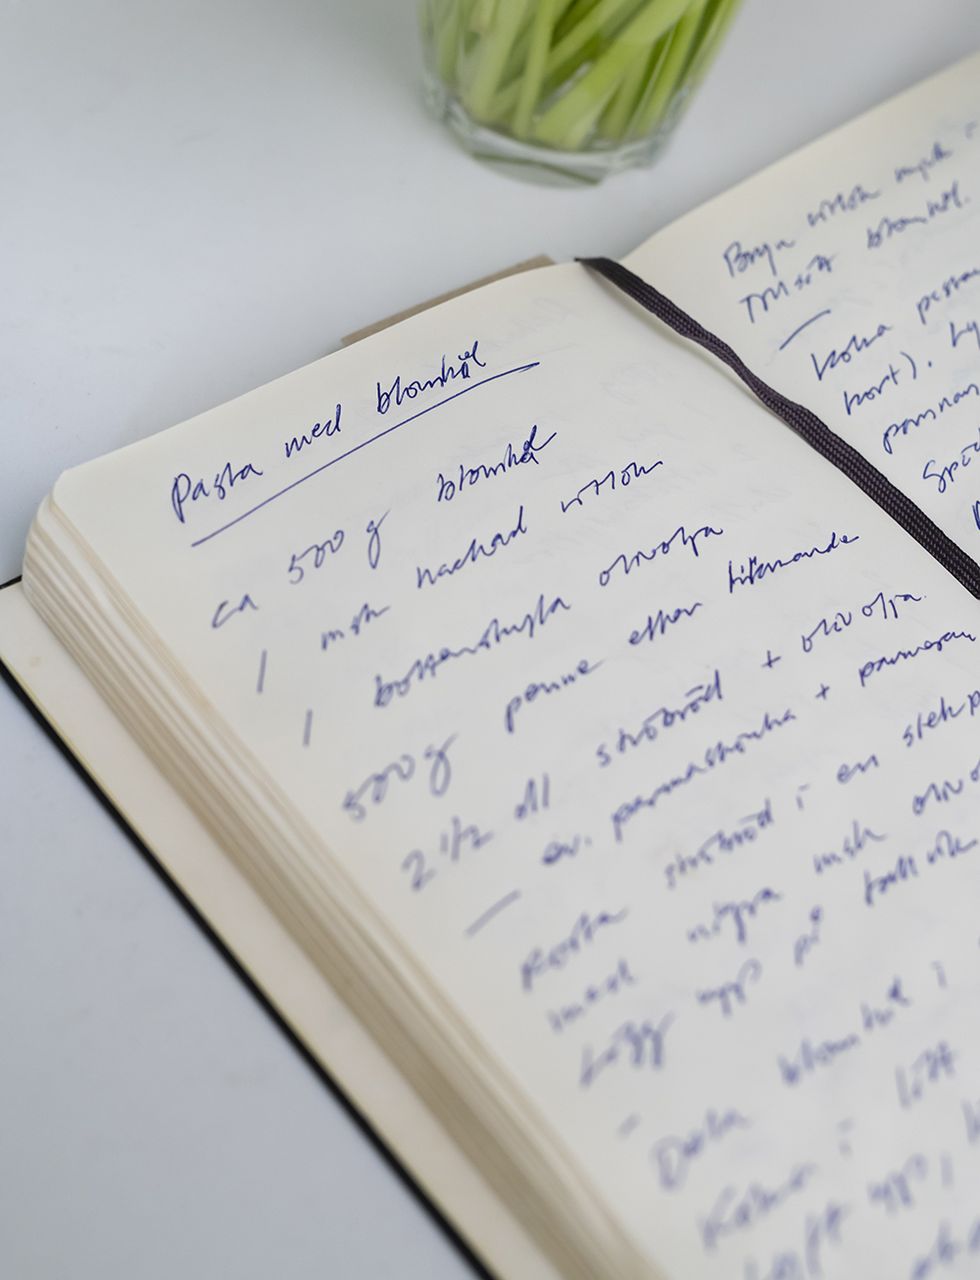 Pasta med blomkål
ca 500 g blomkål
1 msk hackad vitlök
1 bottenskyla olivolja
500 g penne eller liknande
2 1/2 dl ströbröd + olivolja
ev. parmaskinka + parmesan
Rosta ströbröd i en stekp
med några msk olivo
Lägg upp på
Dela blomkål i
Koka i lätt
upp,
Bryn vitlök mjuk i
Tillsätt blomkål.
Koka pasta
kort).
parman